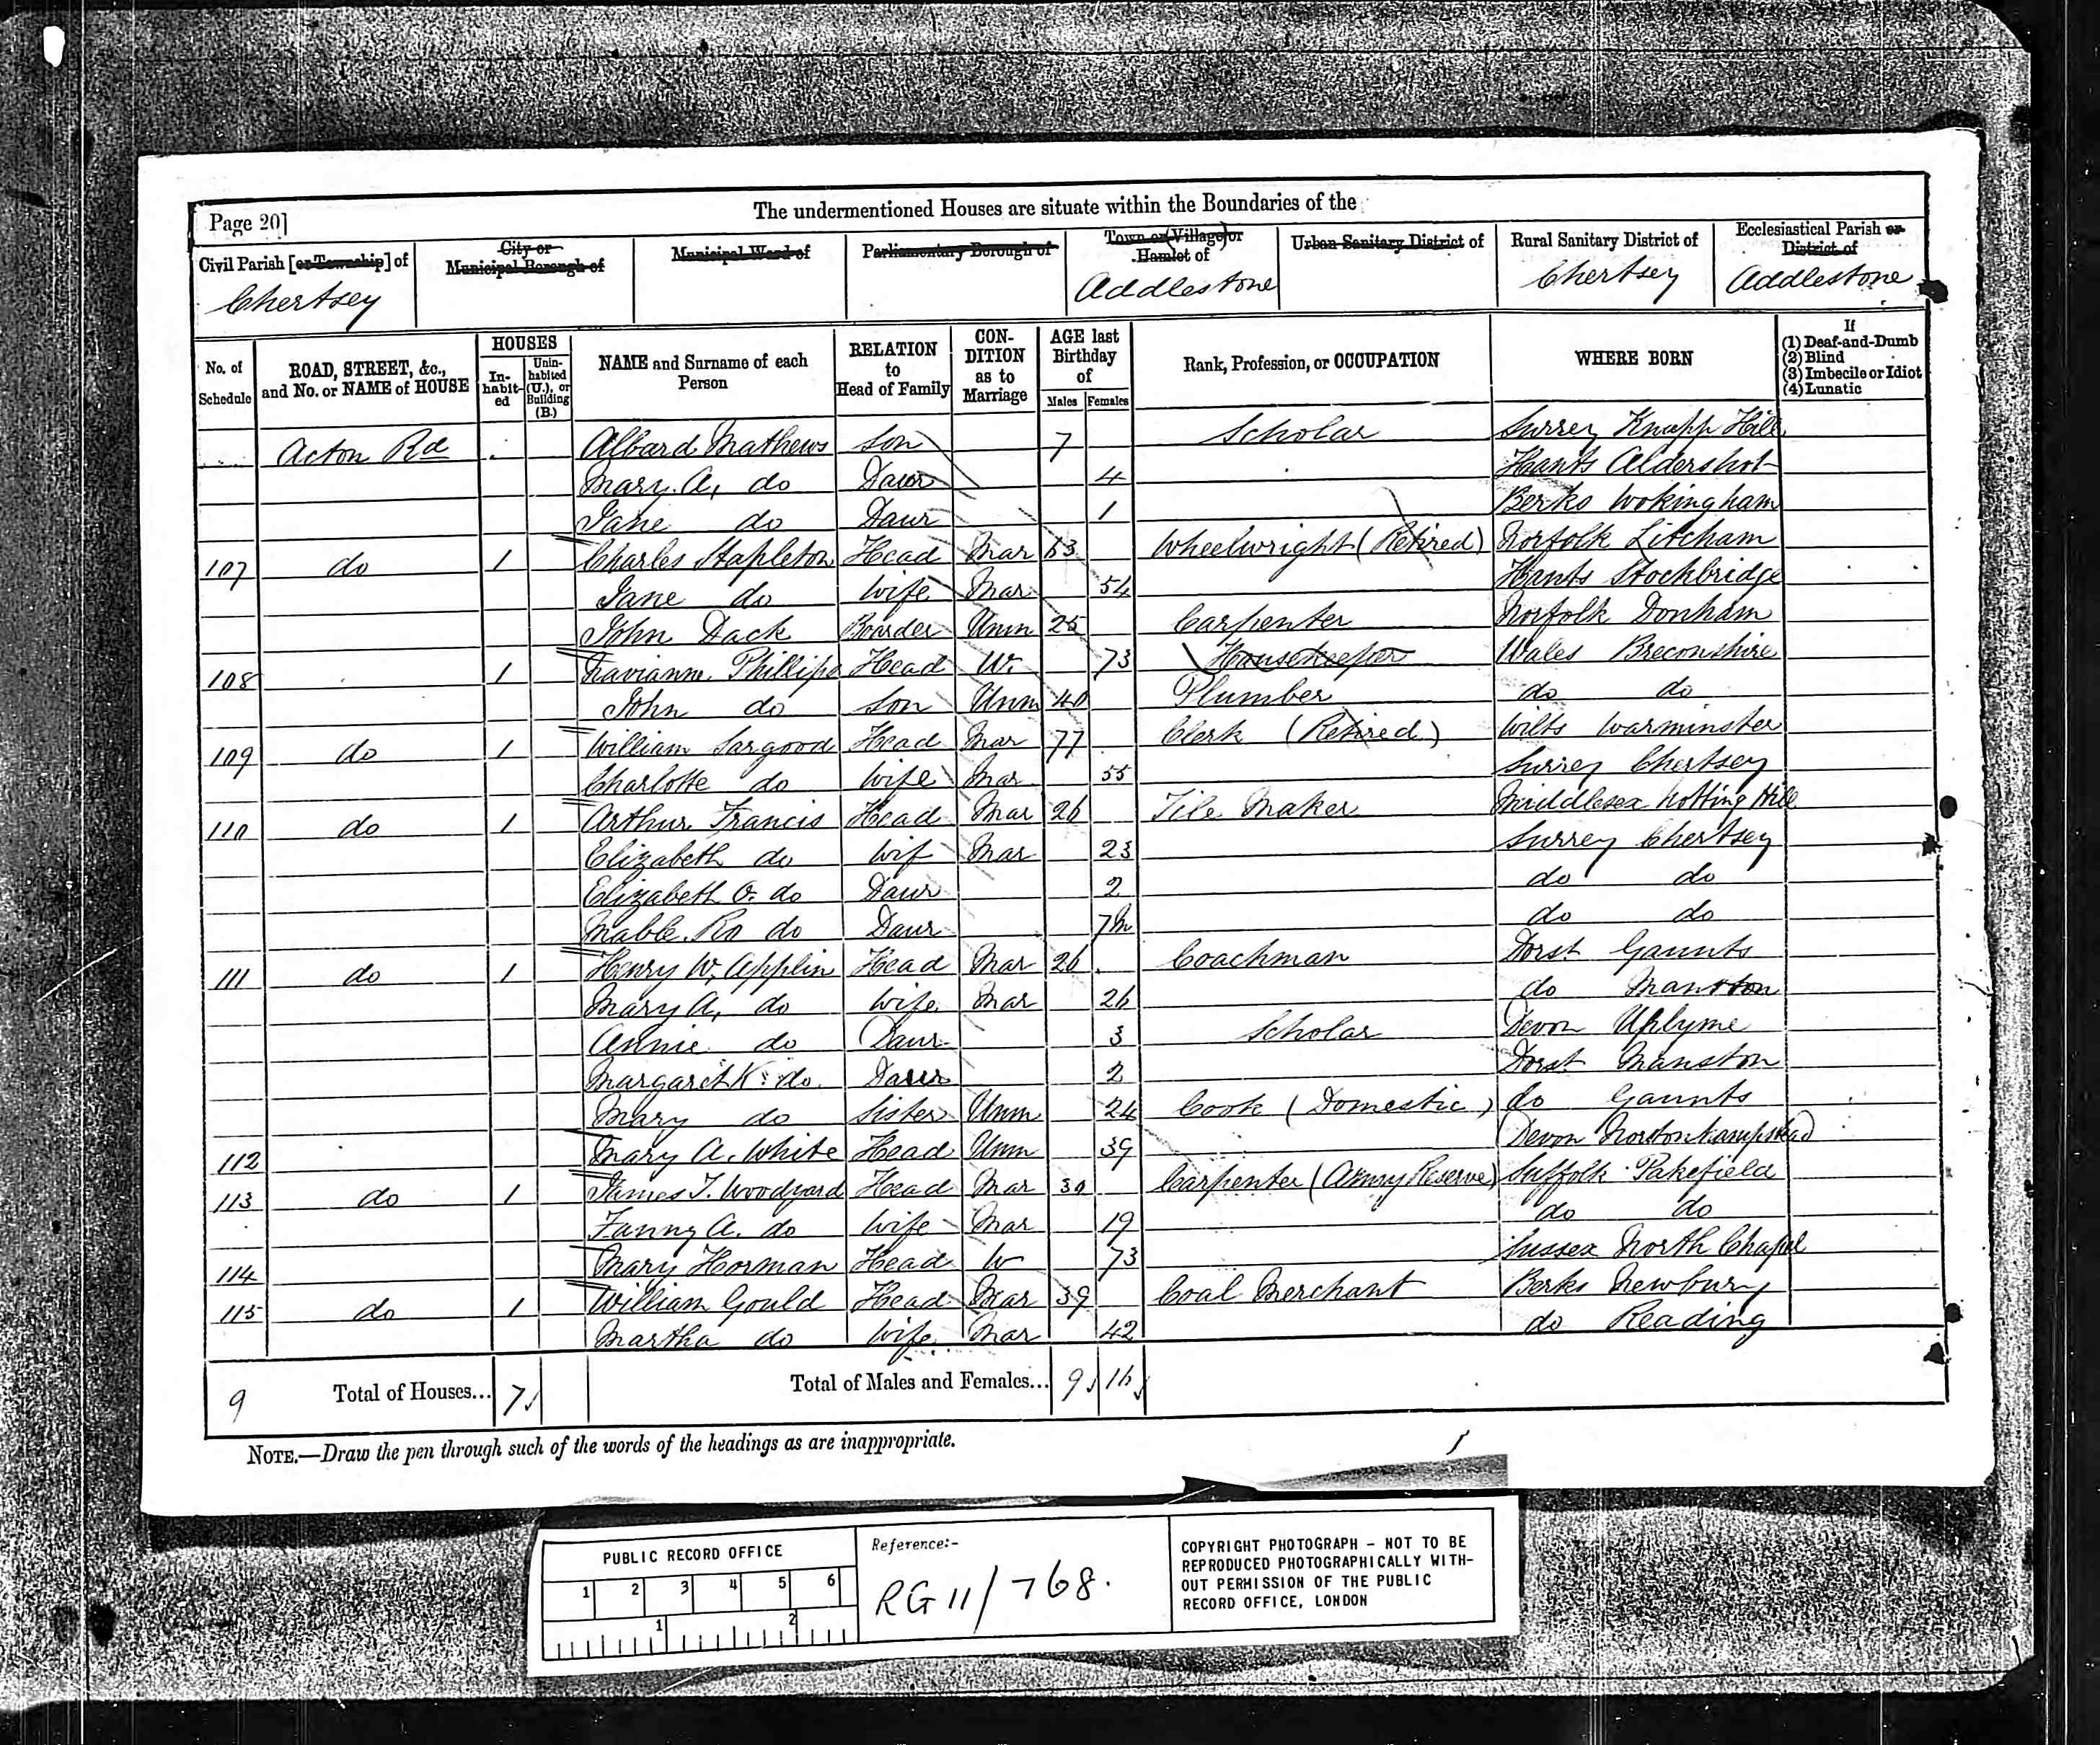 Page 20]
The undermentioned Houses are situate within the Boundaries of the
Civil Parish [or Township] of
City or Municipal Borough of
Municipal Ward of
Parliamentary Borough of
Town or (Village) or Hamlet of
Urban Sanitary District of
Rural Sanitary District of
Ecclesiastical Parish or District of
Chertsey Addlestone Chertsey Addlestone
No. of Schedule
ROAD, STREET, &c., and No. or NAME of HOUSE
HOUSES
In-habit-ed
Unin-habited (U.), or Building (B.)
NAME and Surname of each Person
RELATION to Head of Family
CON-DITION as to Marriage
AGE last Birthday of
Males Females
Rank, Profession, or OCCUPATION
WHERE BORN
If
(1) Deaf-and-Dumb
(2) Blind
(3) Imbecile or Idiot
(4) Lunatic
Acton Rd Albard Mathews Son 7 Scholar Surrey Knapp Hill
Mary. A, do Daur 4 Hants Aldershot
Jane do Daur 1 Berks Wokingham
107 do 1 Charles Stapleton Head Mar 63 Wheelwright (Retired) Norfolk Litcham
Jane do Wife Mar 54 Hants Stockbridge
John Dack Boarder Unm 25 Carpenter Norfolk Donham
108 1 Phillips Head W. 73 Housekeeper Wales Breconshire
John do Son Unm 40 Plumber do do
109 do 1 William Sargood Head Mar 77 Clerk (Retired) Wilts Warminster
Charlotte do Wife Mar 55 Surrey Chertsey
110 do 1 Arthur Francis Head Mar 26 Tile Maker Middlesex Notting Hill
Elizabeth do Wif Mar 23 Surrey Chertsey
Elizabeth O. do Daur 2 do do
Mable. Ro do Daur 7m do do
111 do 1 Henry W. Applin Head Mar 26 Coachman Dorst Gaunts
Mary A, do Wife Mar 26 do Manston
Annie do Daur 3 Scholar Devon Uplyme
Margaret K. do Daur 2 Dorst Manston
Mary do Sister Unm 24 Cook (Domestic) do Gaunts
112 Mary A. White Head Unm 39 Devon
113 do 1 James T. Woodyard Head Mar 30 Carpenter (Army Reserve) Suffolk Pakefield
Fanny A. do Wife Mar 19 do do
114 Mary Horman Head W 73 Sussex North Chapel
115 do 1 William Gould Head Mar 39 Coal Merchant Berks Newbury
Martha do Wife Mar 42 do Reading
9 Total of Houses... 7 Total of Males and Females... 9 16
NOTE.—Draw the pen through such of the words of the headings as are inappropriate.
PUBLIC RECORD OFFICE
1 2 3 4 5 6
1 2
Reference:-
RG 11/768.
COPYRIGHT PHOTOGRAPH – NOT TO BE
REPRODUCED PHOTOGRAPHICALLY WITH-
OUT PERMISSION OF THE PUBLIC
RECORD OFFICE, LONDON